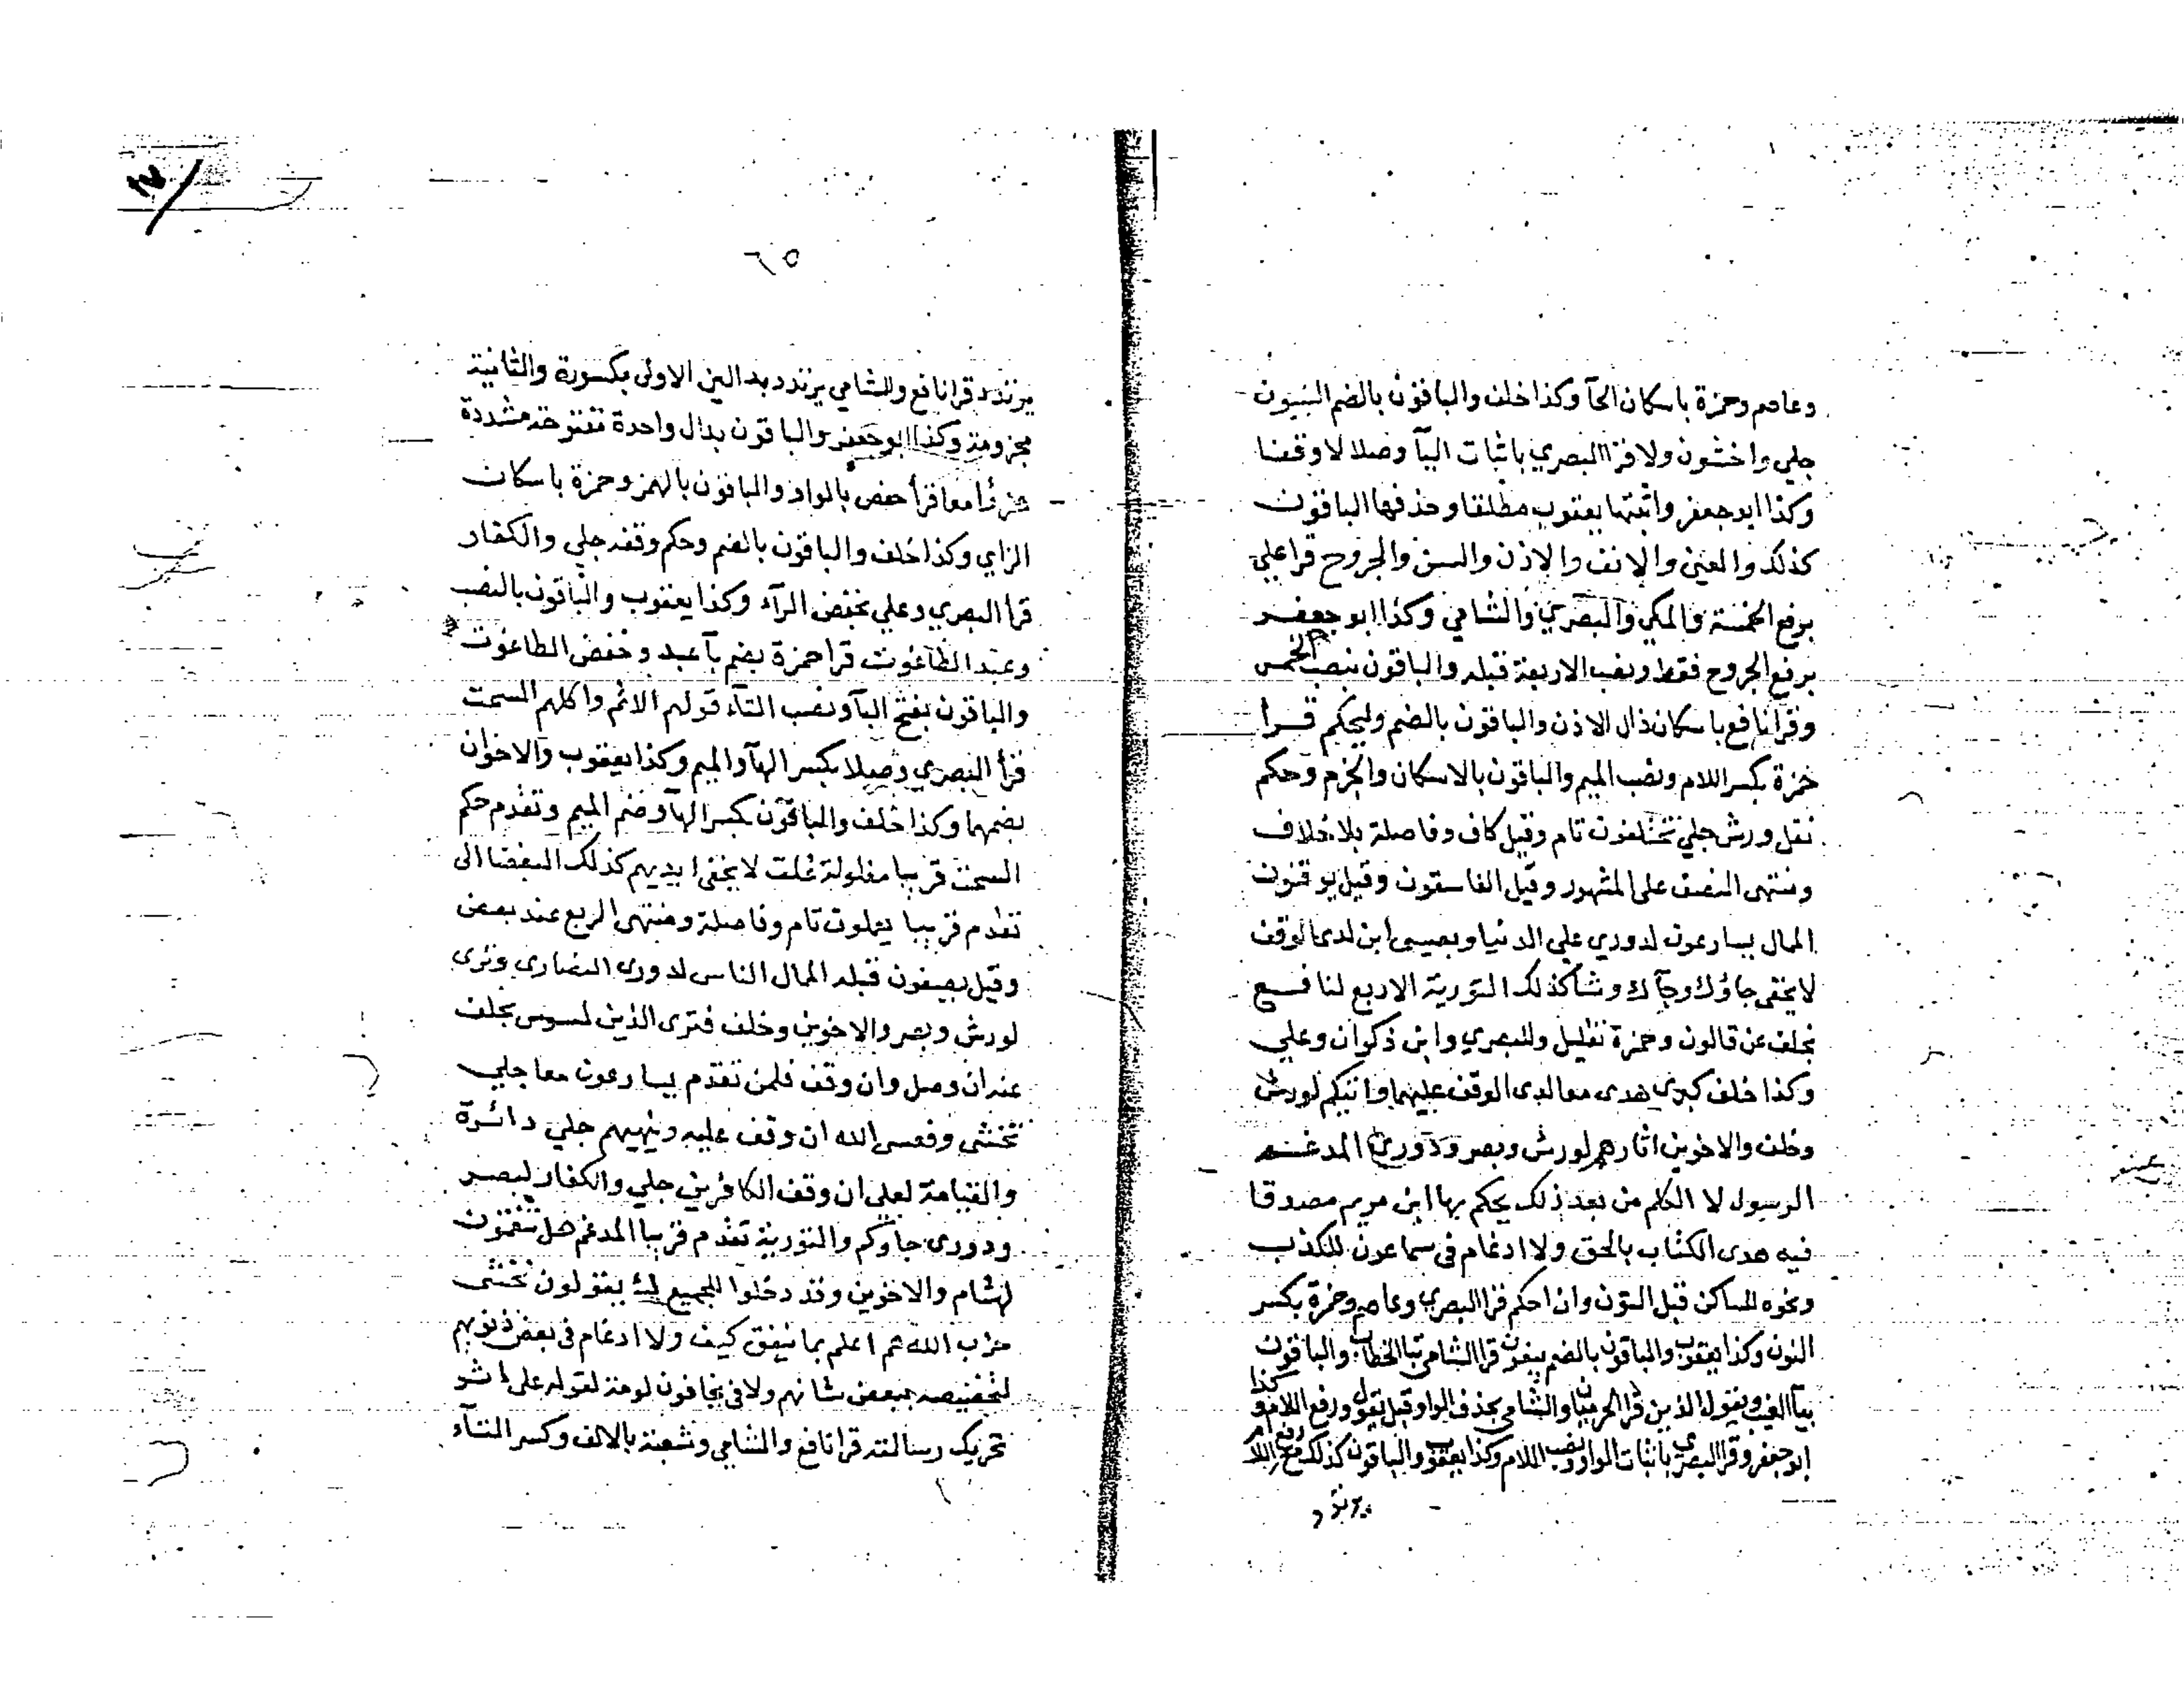 وعاصم وحمزة باسكان الحآ وكذا خلف والباقون بالضم النبيون
جلي واخشون ولا قرا البصري باثبات اليآ وصلا لا وقفا
وكذا ابو جعفر واثبتها يعقوب مطلقا وحذفها الباقون
كذلك والعين والانف والاذن والسن والجروح قرا علي
برفع الخمسة والمكي والبصري والشامي وكذا ابو جعفر
برفع الجروح فقط ونصب الاربعة قبله والباقون بنصب الخمس
وقرا نافع باسكان ذال الاذن والباقون بالضم وليحكم قرا
حمزة بكسر اللام ونصب الميم والباقون بالاسكان والجزم وحكم
نقل ورش جلي تختلفون تام وقيل كاف وفاصلة بلا خلاف
ومنتهى النصف على المشهور وقيل الفاسقون وقيل يوقنون
الممال يسارعون لدوري علي الدنيا وبعيسى ابن لدى الوقف
لا يخفى جاؤك وجآءك وشآ كذلك التورية الاربع لنافع
بخلف عن قالون وحمزة تقليل وللبصري وابن ذكوان وعلي
وكذا خلف كبرى هدى معا لدى الوقف عليهما واتيكم لورش
وخلف والاخوين اثارهم لورش وبصر ودوري المدغم
الرسول لا الكلم من بعد ذلك يحكم بها ابن مريم مصدقا
فيه هدى الكتاب بالحق ولا ادغام في سماعون للكذب
ونحوه للساكن قبل النون وان احكم قرا البصري وعاصم وحمزة بكسر
النون وكذا يعقوب والباقون بالضم يبغون قرا الشامي بتا الخطاب والباقون
بيآ الغيب ويقول الذين قرا الحرميان والشامي بحذف الواو قبل يقول ورفع اللام وكذا
ابو جعفر وقرا البصري باثبات الواو ونصب اللام وكذا يعقوب والباقون كذلك مع رفع اللام
يرتدد
٦٥
يرتدد قرا نافع والشامي يرتدد بدالين الاولى مكسورة والثانية
مجزومة وكذا ابو جعفر والباقون بدال واحدة مفتوحة مشددة
هزؤا معا قرا حفص بالواو والباقون بالهمز وحمزة باسكان
الزاي وكذا خلف والباقون بالضم وحكم وقفه جلي والكفار
قرا البصري وعلي بخفض الرآء وكذا يعقوب والباقون بالنصب
وعبد الطاغوت قرا حمزة بضم بآ عبد وخفض الطاغوت
والباقون بفتح البآ ونصب التآء قولهم الاثم واكلهم السحت
قرا البصري وصلا بكسر الهآ والميم وكذا يعقوب والاخوان
بضمهما وكذا خلف والباقون بكسر الهآ وضم الميم وتقدم حكم
السحت قريبا مغلولة غلت لا يخفى ايديهم كذلك البغضا الى
تقدم قريبا يعملون تام وفاصلة ومنتهى الربع عند بعض
وقيل يصنعون قبله الممال الناس لدوري النصارى وترى
لورش وبصر والاخوين وخلف فترى الذين لسوس بخلف
عنه ان وصل وان وقف فلمن تقدم يسارعون معا جلي
نخشى وفعسى الله ان وقف عليه وينهيهم جلي دائرة
والقيامة لعلي ان وقف الكافرين جلي والكفار لبصر
ودوري جاوكم والتورية تقدم قريبا المدغم هل تنقمون
لهشام والاخوين وقد دخلوا للجميع يقولون نخشى
حزب الله هم اعلم بما ينفق كيف ولا ادغام في بعض ذنوبهم
لتخصيصه ببعض شانهم ولا في يخافون لومة لقوله على اثر
تحريك رسالته قرا نافع والشامي وشعبة بالالف وكسر التآء